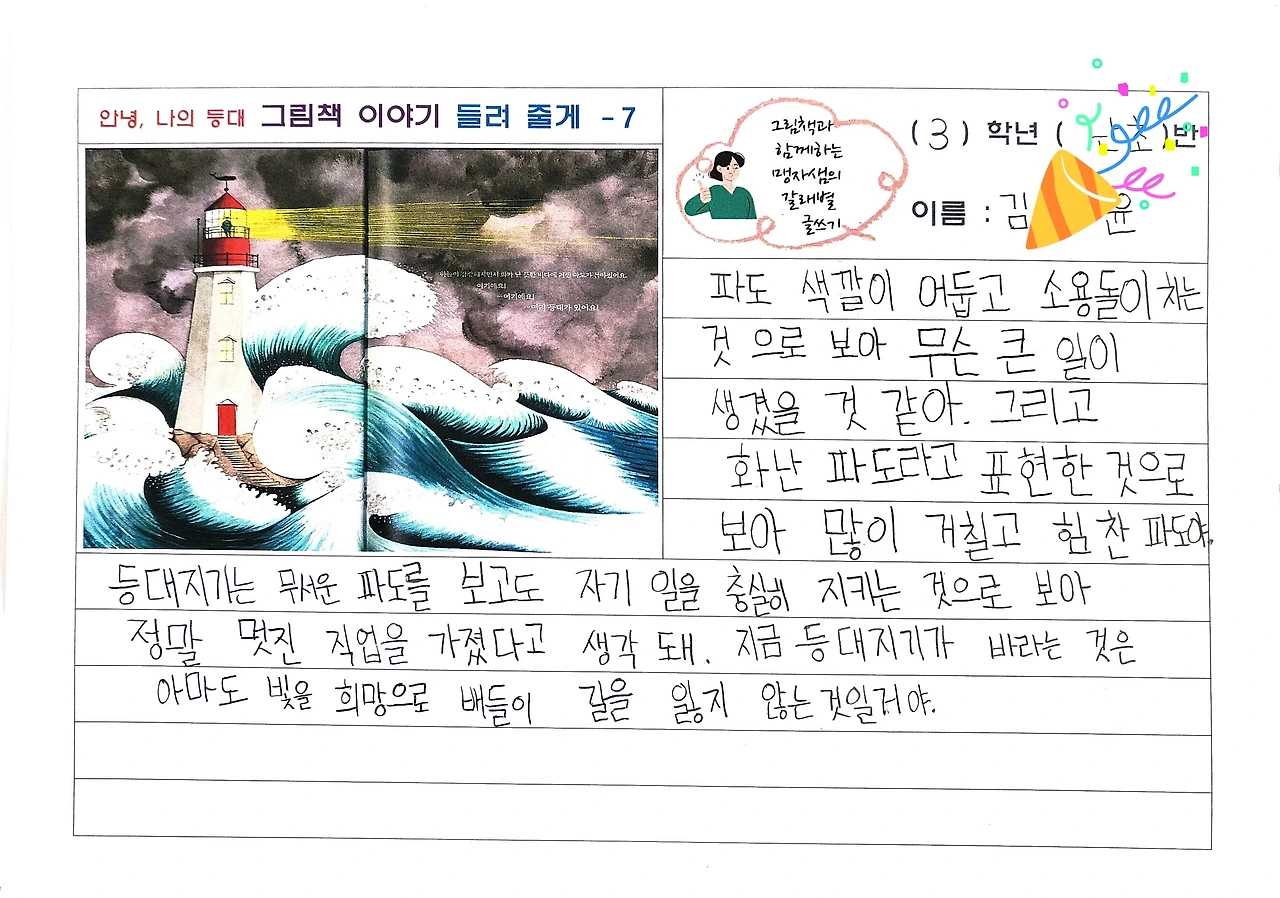 안녕, 나의 등대 그림책 이야기 들려 줄게 -7
그림책과
함께하는
맹자샘의
갈래별
글쓰기
(3) 학년 ( )반
이름 : 김 윤
여기예요!
여기예요!
여기 등대가 있어요!
파도 색깔이 어둡고 소용돌이 치는
것 으로 보아 무슨 큰 일이
생겼을 것 같아. 그리고
화난 파도라고 표현한 것으로
보아 많이 거칠고 힘 찬 파도야.
등대지기는 무서운 파도를 보고도 자기 일을 충실히 지키는 것으로 보아
정말 멋진 직업을 가졌다고 생각 돼. 지금 등대지기가 바라는 것은
아마도 빛을 희망으로 배들이 길을 잃지 않는 것일거야.